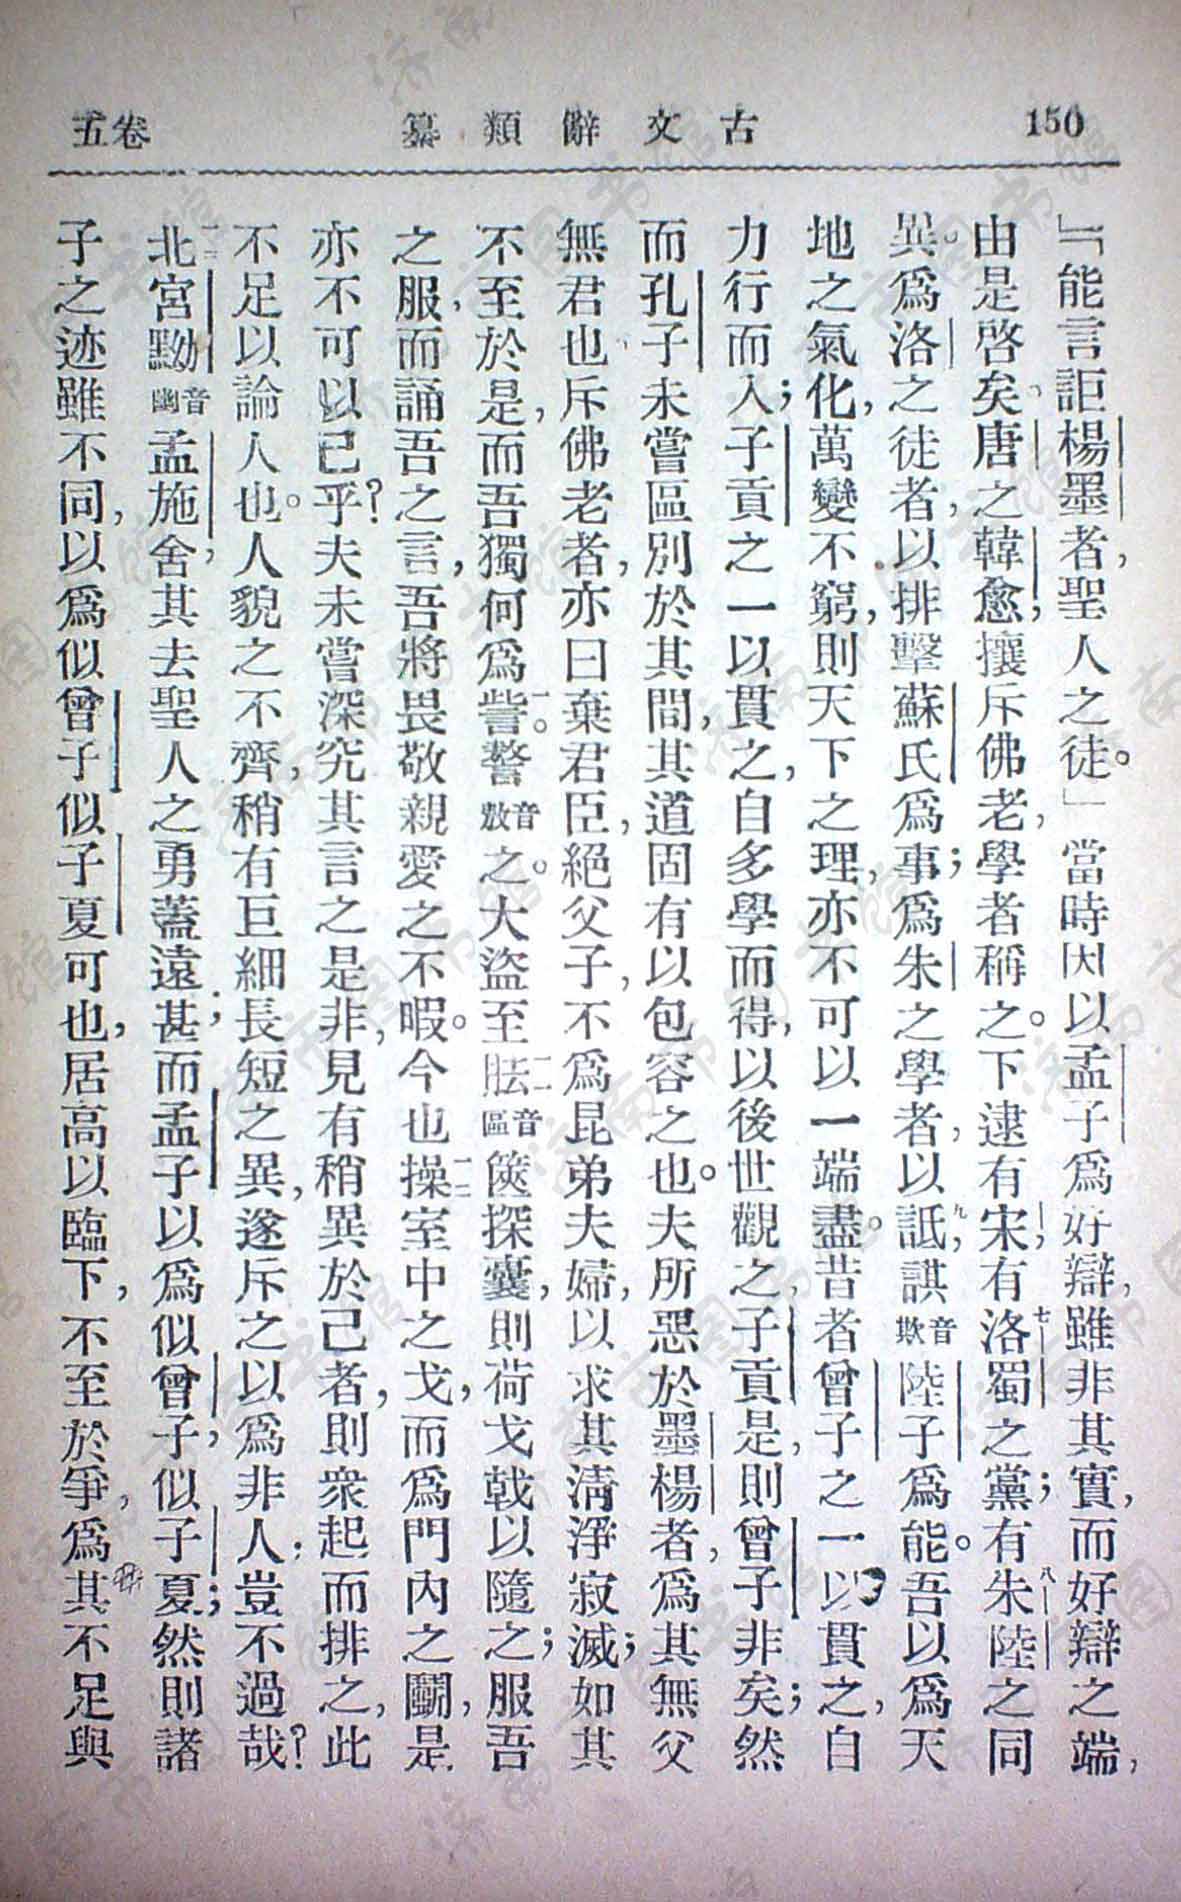 150
古文辭類纂
卷五
』「能言詎楊墨者，聖人之徒。」當時因以孟子爲好辯，雖非其實，而好辯之端，
由是啓矣。唐之韓愈，攘斥佛老，學者稱之。下逮有宋，有洛蜀七之黨；有朱陸八之同
異。爲洛之徒者，以排擊蘇氏爲事；爲朱之學者，以詆九諆音欺陸子爲能。吾以爲天
地之氣化，萬變不窮，則天下之理，亦不可以一端盡。昔者曾子之一以貫之，自
力行而入；子貢之一以貫之，自多學而得，以後世觀之，子貢是，則曾子非矣；然
而孔子未嘗區別於其間，其道固有以包容之也。夫所惡於墨楊者，爲其無父
無君也，斥佛老者，亦曰棄君臣，絕父子，不爲昆弟夫婦，以求其淸淨寂滅；如其
不至於是，而吾獨何爲訾一〇謷音敖之。大盜至，胠一一音區篋探囊，則荷戈戟以隨之；服吾
之服，而誦吾之言，吾將畏敬親愛之不暇。今也操一二室中之戈，而爲門內之鬭，是
亦不可以已乎？夫未嘗深究其言之是非，見有稍異於己者，則衆起而排之，此
不足以論人也。人貌之不齊，稍有巨細長短之異，遂斥之以爲非人，豈不過哉？
北一三宮黝音幽孟施舍，其去聖人之勇蓋遠甚；而孟子以爲似曾子，似子夏；然則諸
子之迹雖不同，以爲似曾子似子夏可也，居高以臨下，不至於爭，爲其不足與